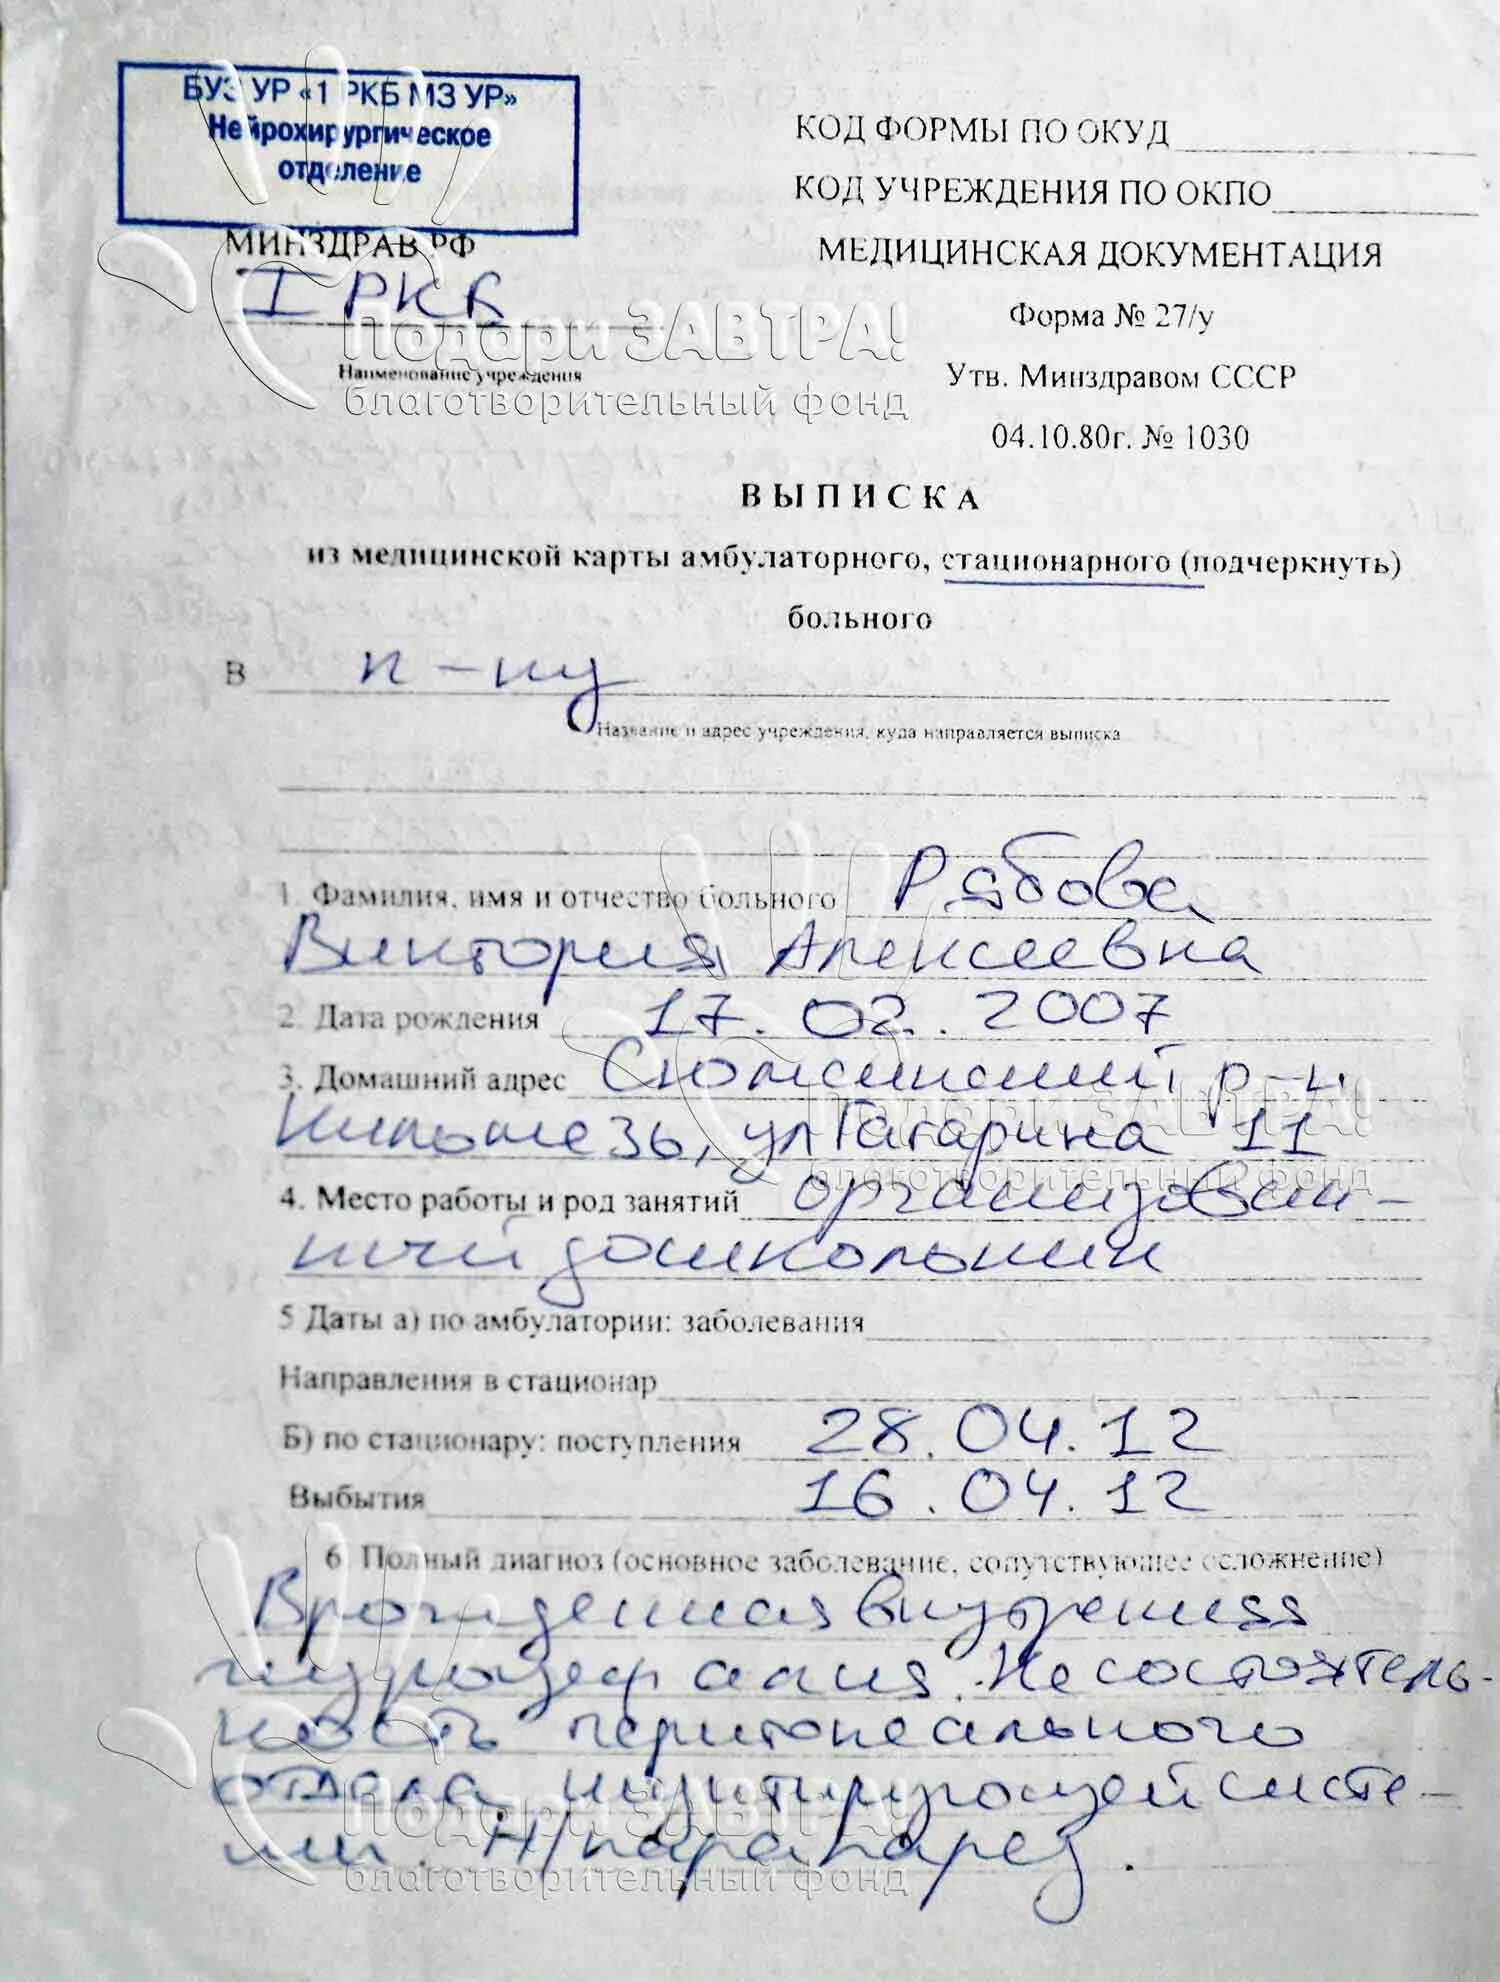 БУЗ УР «1 РКБ МЗ УР»
Нейрохирургическое
отделение
МИНЗДРАВ РФ
I РКБ
Наименование учреждения
КОД ФОРМЫ ПО ОКУД
КОД УЧРЕЖДЕНИЯ ПО ОКПО
МЕДИЦИНСКАЯ ДОКУМЕНТАЦИЯ
Форма № 27/у
Утв. Минздравом СССР
04.10.80г. № 1030
Подари ЗАВТРА!
благотворительный фонд
ВЫПИСКА
из медицинской карты амбулаторного, стационарного (подчеркнуть)
больного
В п-ку
Название и адрес учреждения, куда направляется выписка
1. Фамилия, имя и отчество больного Рябова
Виктория Алексеевна
2. Дата рождения 17.02.2007
3. Домашний адрес Сюмсинский р-н
Кильмезь, ул Гагарина 11
Подари ЗАВТРА!
благотворительный фонд
4. Место работы и род занятий организован-
ный дошкольник
5 Даты а) по амбулатории: заболевания
Направления в стационар
Б) по стационару: поступления 28.04.12
Выбытия 16.04.12
6. Полный диагноз (основное заболевание, сопутствующее осложнение)
Врожденная внутренняя
гидроцефалия. Несостоятель-
ность перитонеального
отдела шунтирующей систе-
мы. Н/парапарез.
Подари ЗАВТРА!
благотворительный фонд